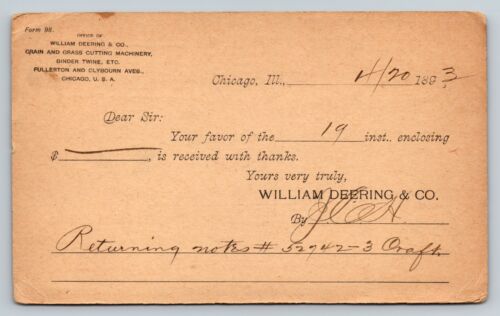 Form 98.
OFFICE OF
WILLIAM DEERING & CO.,
GRAIN AND GRASS CUTTING MACHINERY,
BINDER TWINE, ETC.
FULLERTON AND CLYBOURN AVES.,
CHICAGO, U. S. A.
Chicago, Ill., 4/20 1893
Dear Sir:
Your favor of the 19 inst., enclosing
$ is received with thanks.
Yours very truly,
WILLIAM DEERING & CO.
By
Returning notes # 52742-3 Craft.